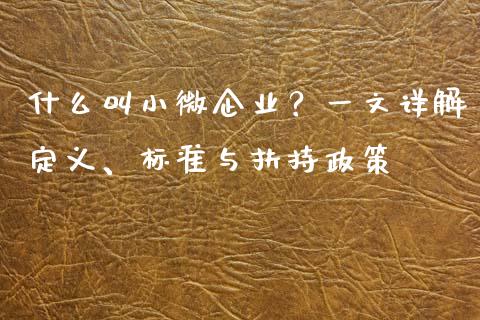 什么叫小微企业？一文详解
定义、标准与扶持政策